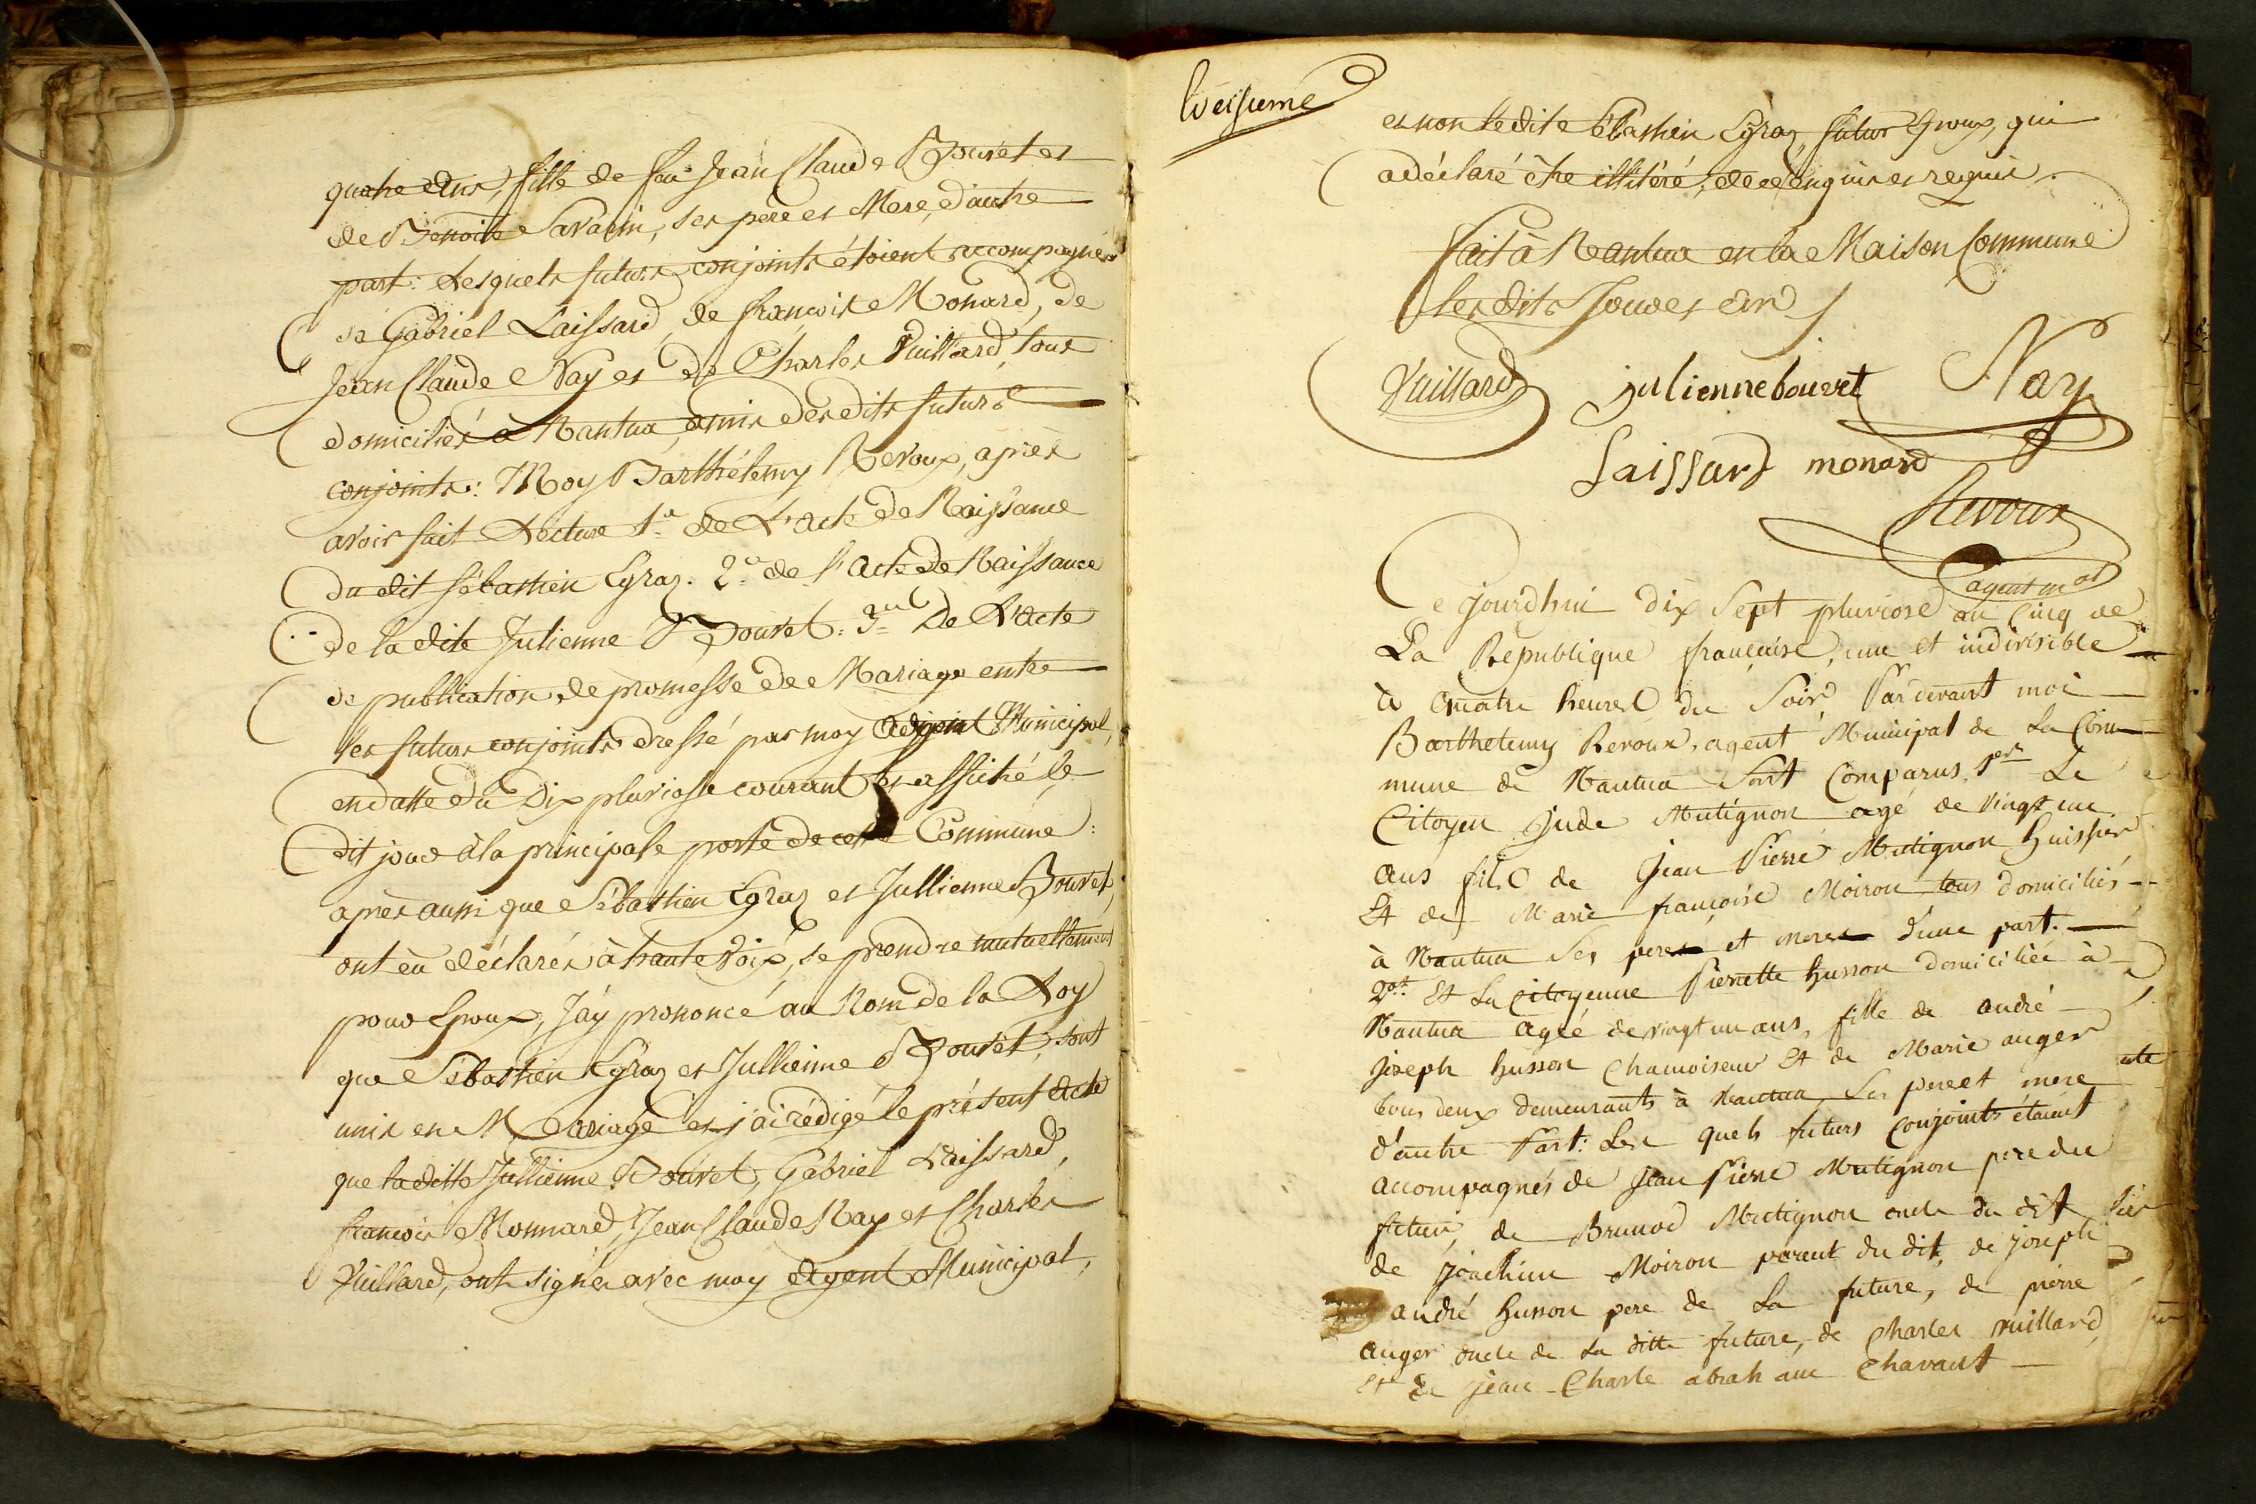 quatre ans, fille de feu Jean Claude Bouvet et
de Benoite Savarin, ses père et Mere, d'autre
part : Lesquels futurs conjoints étoient accompagnés
de Gabriel Laissard, de françois Monard, de
Jean Claude Nay et de Charles Vuillard, tous
domiciliés à Nantua, amis desdits futurs
conjoints : Moy Barthélemy Revoux, après
avoir fait Lecture 1.º de L'acte de Naissance
du dit Sébastien Egraz. 2.º de l'Acte de Naissance
de la dite Julienne Bouvet : 3.º De L'acte
de publication de promesse de Mariage entre
les futurs conjoints dressé par moy Municipal,
en datte du Dix pluviose courant et affiché le
dit jour à la principale porte de cette Commune :
après aussi que Sébastien Egraz et Jullienne Bouvet,
ont eû déclarés à haute voix, se prendre mutuellement
pour Epoux, J'áy prononcé au Nom de la Loy
que Sébastien Egraz et Jullienne Bouvet, sont
unis en Mariage et j'ai rédigé le présent acte
que laditte Jullienne Bouvet, Gabriel Laissard,
francois Monnard, Jean Claude Nay et Charles
Vuillard, ont signés avec moy Agent Municipal,
et non ledit Sébastien Egraz, futur Epoux, qui
a déclaré être illitéré, de ce enquis et requis.
fait à Nantua en la Maison Commune
les dits Jour et an
Vuillard julienne bouvet Nay
Laissard monard
Revoux
agent m.al
Ce jourdhui dix Sept pluviose an Cinq de
La Republique françaisse, une et indivisible
à quatre heures du Soir Pardevant moi
Barthelemy Revoux, agent Municipal de La Com
mune de Nantua Sont Comparus, 1er Le
Citoyen Jude Mutignon agé de vingt un
ans fils de Jean Pierre Mutignon huissier
Et de Marie françoise Moiron tous domiciliés
à Nantua Ses peres et meres d'une part.
2.nt Et La Citoyenne Pierrette husson domiciliée à
Nantua agéé de vingt un ans, fille de andré
Joseph husson Chamoiseur Et de Marie auger
tous deux demeurants à Nantua, Ses pere et mere
d'autre Part : Les quels futurs conjoints étaient
accompagnés de Jean Pierre Mutignon pere du
futur, de Brunod Mutignon oncle du dit
de Joachim Moiron parent du dit, de joseph
andré husson pere de La future, de pierre
auger oncle de La ditte future, de Charles vuillard
Et de jean Charle abraham Chavant